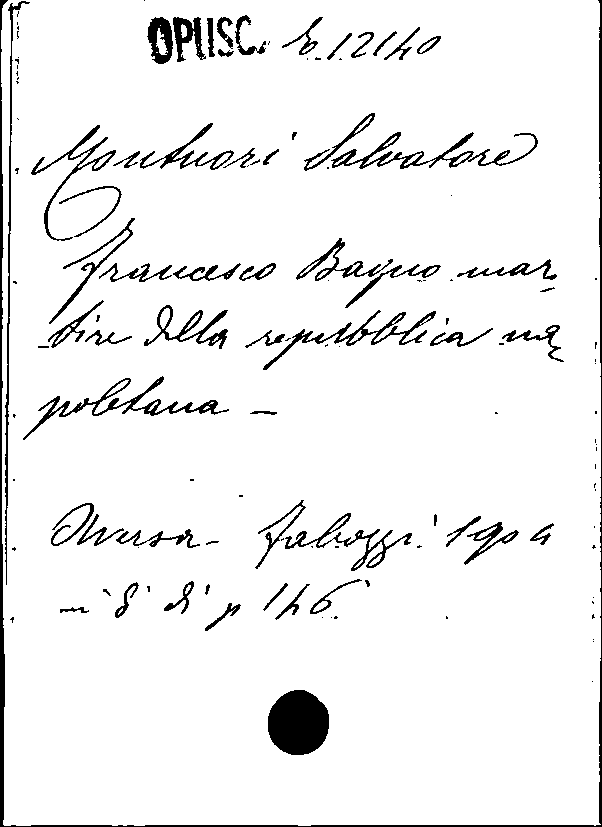 OPUSC. E.12140
Montuori Salvatore
Francesco Bagno mar-
tire della repubblica na-
poletana -
Aversa - Fabozzi 1904
in 8° di p 146.